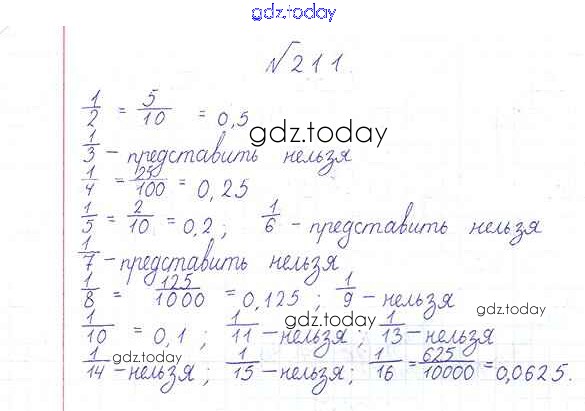 gdz.today
№211.
1/2 = 5/10 = 0,5
gdz.today
1/3 - представить нельзя
1/4 = 25/100 = 0,25
1/5 = 2/10 = 0,2; 1/6 - представить нельзя
1/7 - представить нельзя
1/8 = 125/1000 = 0,125; 1/9 - нельзя
gdz.today
1/10 = 0,1; 1/11 - нельзя; 1/13 - нельзя
gdz.today
gdz.today
1/14 - нельзя; 1/15 - нельзя; 1/16 = 625/10000 = 0,0625.